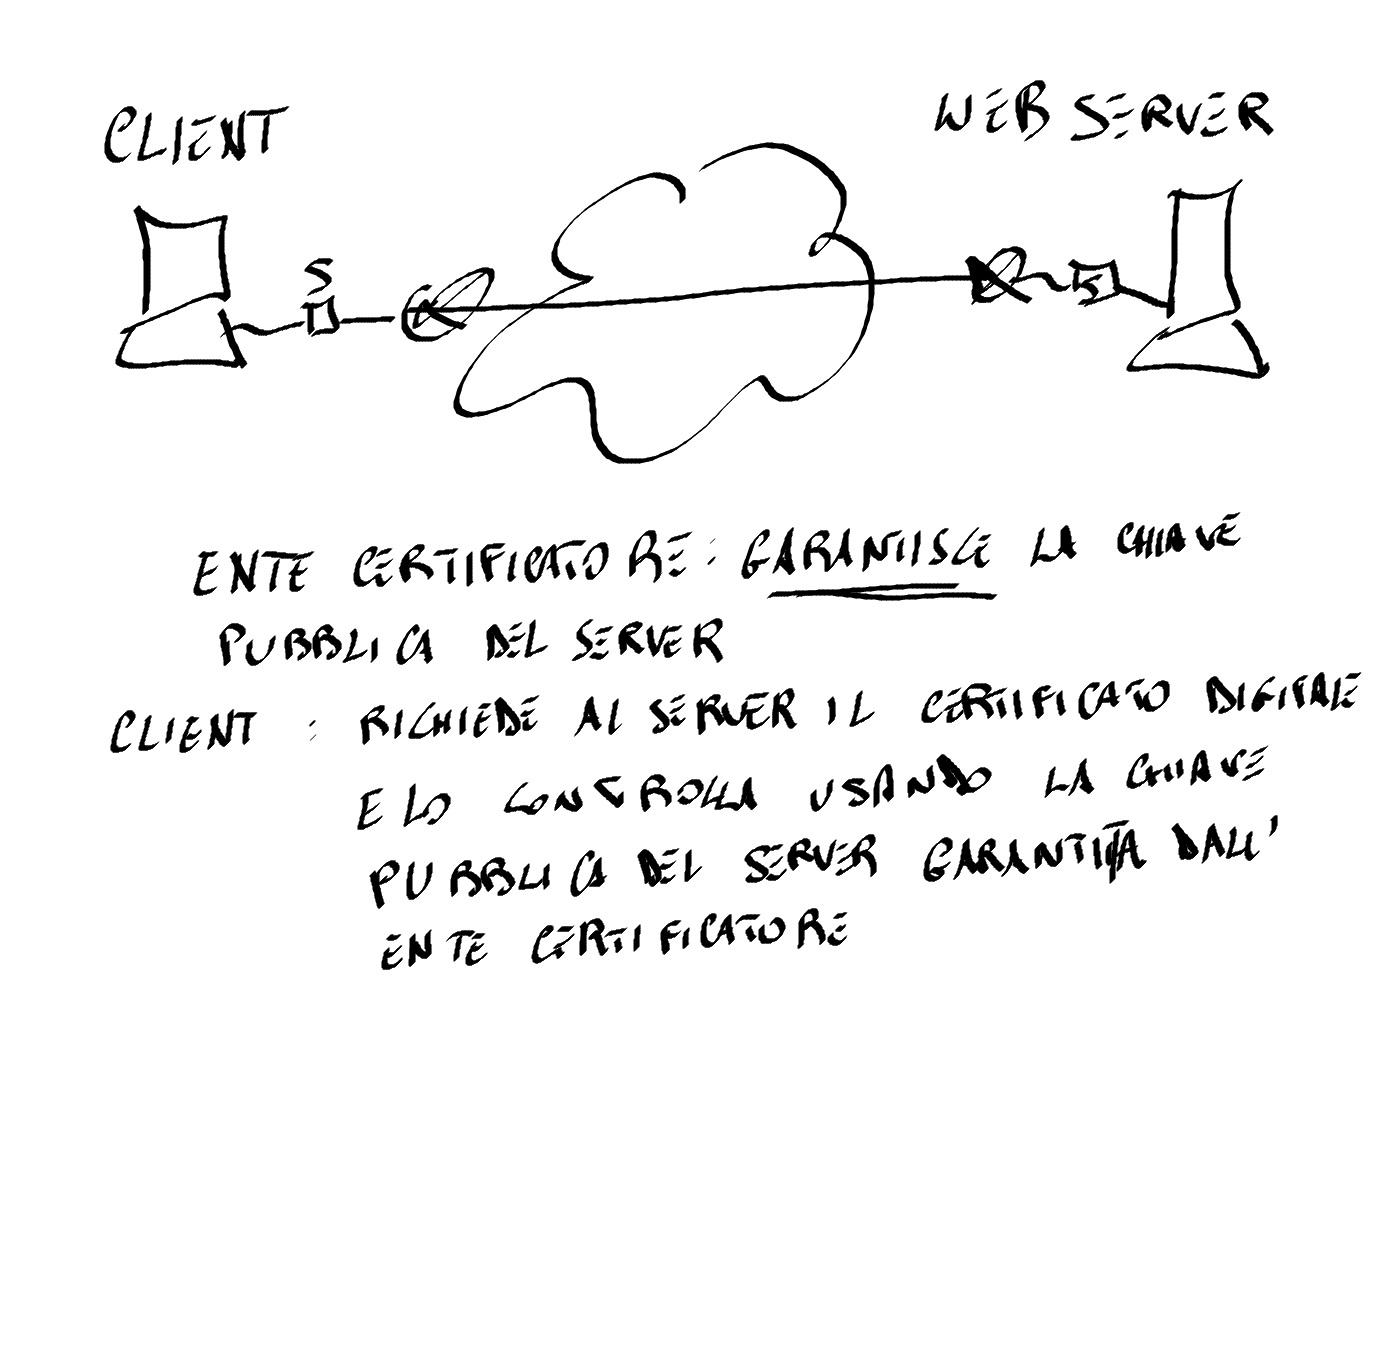 CLIENT
WEB SERVER
S
S
ENTE CERTIFICATORE : GARANTIISCE LA CHIAVE
PUBBLICA DEL SERVER
CLIENT : RICHIEDE AL SERVER IL CERTIFICATO DIGITALE
E LO CONTROLLA USANDO LA CHIAVE
PUBBLICA DEL SERVER GARANTITA DALL'
ENTE CERTIFICATORE